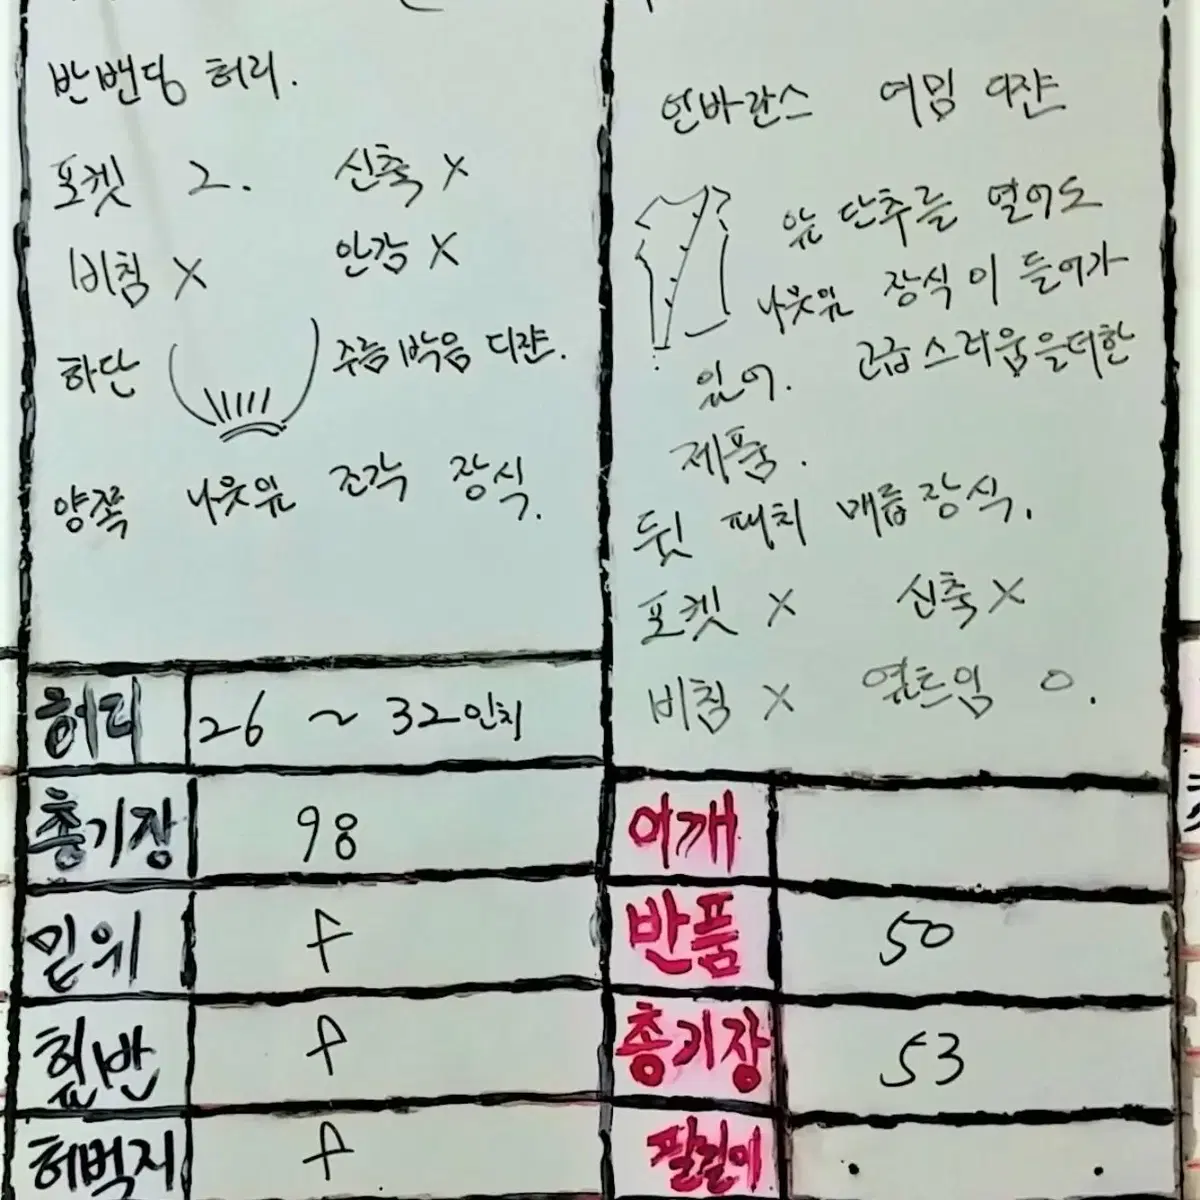 반밴딩 허리.
포켓 2. 신축 X
비침 X 안감 X
하단 주름박음 디쟌.
양쪽 나뭇잎 조각 장식.
허리 26 ~ 32인치
총기장 98
밑위 f
힢반 f
허벅지 f
언바란스 여밈 디쟌
앞 단추를 열어도
나뭇잎 장식이 들어가
있어. 고급스러움을더한
제품.
뒷 패치 매듭장식.
포켓 X 신축 X
비침 X 옆트임 O.
어깨
반품 50
총기장 53
팔길이